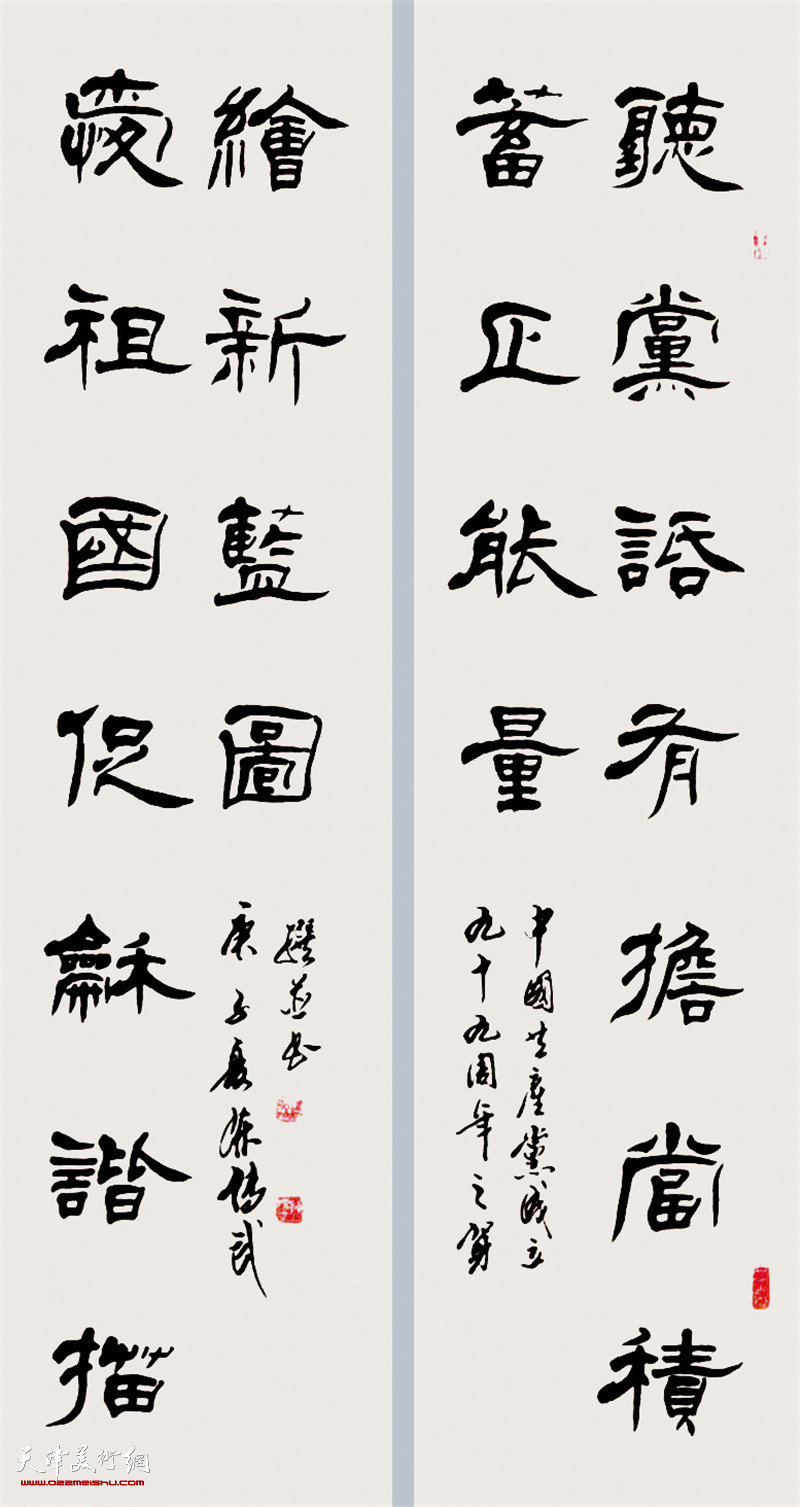 聽黨話有擔當積
蓄正能量
中國共產黨成立
九十九周年之賀
愛祖國促龢諧描
繪新藍圖
庚子夏陳傳武
撰並书
天津美術網
www.022meishu.com